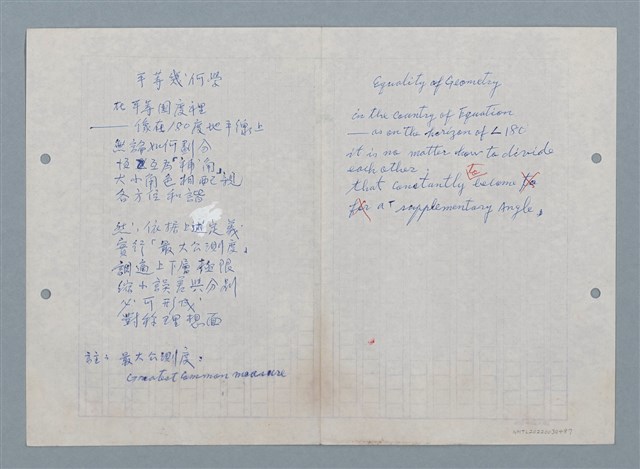 平等幾何學
在平等國度裡
——像在180度地平線上
無論如何劃分
恒互為「補角」
大小角色相配視
各方位和諧
然，依据上述定義
實行「最大公測度」
調適上下層極限
縮小誤差與分別
必可形成
對称理想面
註：最大公測度：
Greatest Common measure
Equality of Geometry
in the Country of Equation
—as on the horizon of ∠ 180
it is no matter how to divide
each other
that constantly become to
for a "supplementary Angle」